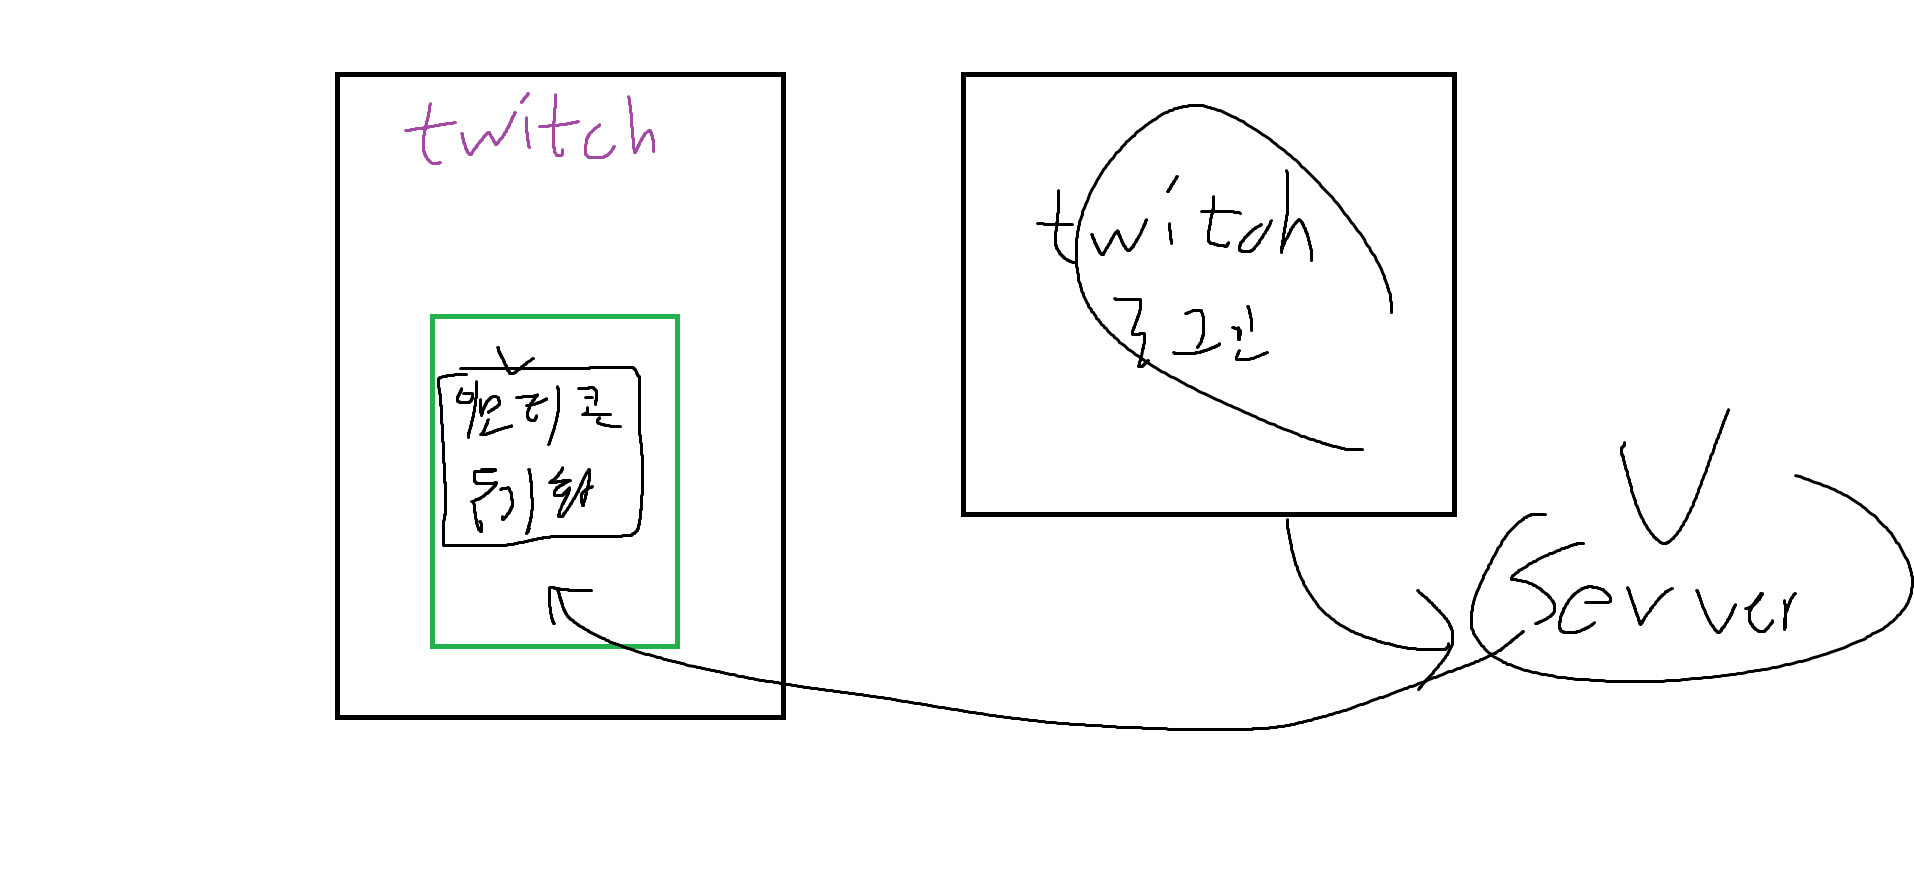 twitch
이모티콘
동기화
twitch
로그인
Server